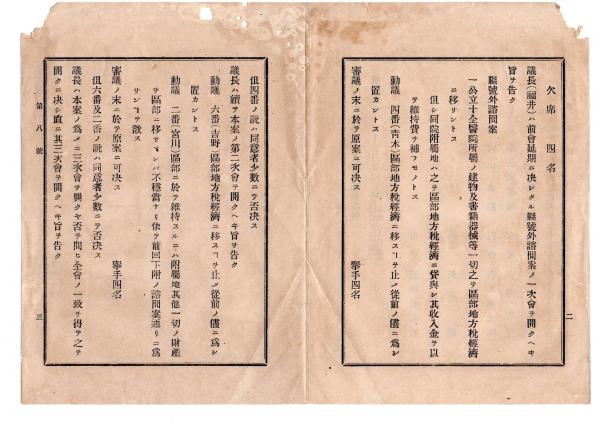 欠席　四名
議長（福井）ハ前會延期ニ決シタル縣號外諮問案ノ一次會ヲ開クヘキ
旨ヲ告ク
縣號外諮問案
一公立十全醫院所屬ノ建物及書籍器械等一切之ヲ區部地方稅經濟
ニ移サントス
但シ同院附屬地ハ之ヲ區部地方稅經濟ニ貸與シ其收入金ヲ以
テ維持費ヲ補フモノトス
動議　四番（靑木）區部地方稅經濟ニ移スヿヲ止メ從前ノ儘ニ爲シ
置カントス
審議ノ末ニ於テ原案ニ可决ス　擧手四名
二
但四番ノ說ハ同意者少數ニテ否决ス
議長ハ續テ本案ノ第二次會ヲ開クヘキ旨ヲ告ク
動議　六番（吉野）區部地方稅經濟ニ移スヿヲ止メ從前ノ儘ニ爲シ
置カントス
動議　二番（宮川）區部ニ於テ維持スルニハ附屬地其他一切ノ財產
ヲ區部ニ移サヽレバ不穩當ナリ依テ前回下附ノ諮問案通リニ爲
サンヿヲ欲ス
審議ノ末ニ於テ原案ニ可决ス　擧手四名
但六番及二番ノ說ハ同意者少數ニテ否决ス
議長ハ本案ノ爲メニ三次會ヲ開クヤ否ヲ問ヒ全會ノ一致ヲ得テ之ヲ
開クニ决シ直ニ其三次會ヲ開クヘキ旨ヲ告ク
第八號
三